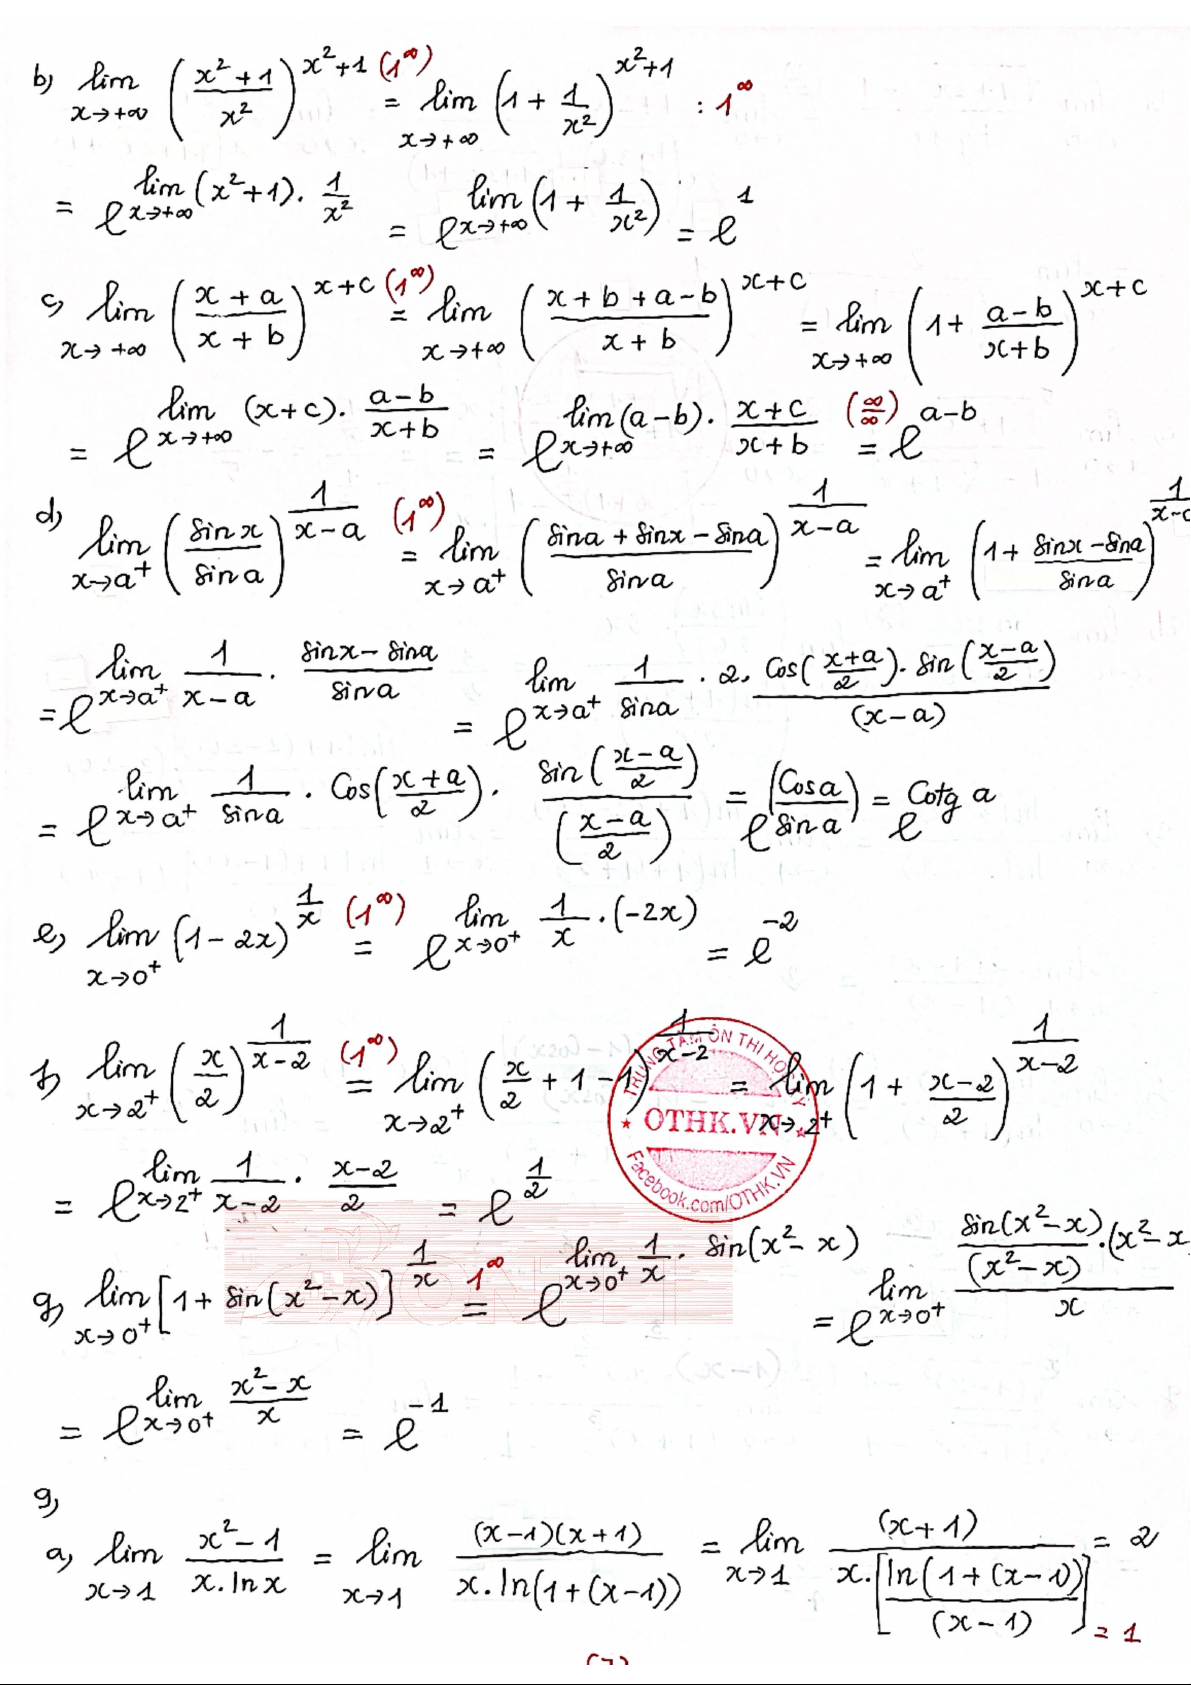 b) lim x→+∞ ((x²+1)/x²)^(x²+1) (1^∞) = lim x→+∞ (1 + 1/x²)^(x²+1) : 1^∞
= e^(lim x→+∞ (x²+1). 1/x²) = e^(lim x→+∞ (1 + 1/x²)) = e^1
c) lim x→+∞ ((x+a)/(x+b))^(x+c) (1^∞) = lim x→+∞ ((x+b+a-b)/(x+b))^(x+c) = lim x→+∞ (1 + (a-b)/(x+b))^(x+c)
= e^(lim x→+∞ (x+c). (a-b)/(x+b)) = e^(lim x→+∞ (a-b). (x+c)/(x+b)) (∞/∞) = e^(a-b)
d) lim x→a⁺ (sinx/sina)^(1/(x-a)) (1^∞) = lim x→a⁺ ((sina + sinx - sina)/sina)^(1/(x-a)) = lim x→a⁺ (1 + (sinx - sina)/sina)^(1/(x-a
= e^(lim x→a⁺ 1/(x-a) . (sinx - sina)/sina) = e^(lim x→a⁺ 1/sina . 2. Cos((x+a)/2). sin((x-a)/2)/(x-a))
= e^(lim x→a⁺ 1/sina . Cos((x+a)/2). sin((x-a)/2)/((x-a)/2)) = e^(Cosa/sina) = e^(Cotg a)
e) lim x→0⁺ (1-2x)^(1/x) (1^∞) = e^(lim x→0⁺ 1/x .(-2x)) = e^(-2)
f) lim x→2⁺ (x/2)^(1/(x-2)) (1^∞) = lim x→2⁺ (x/2 + 1 - 1)^(1/(x-2)) = lim x→2⁺ (1 + (x-2)/2)^(1/(x-2))
TRUNG TÂM ÔN THI HỌC KỲ
OTHK.VN
Facebook.com/OTHK.VN
= e^(lim x→2⁺ 1/(x-2) . (x-2)/2) = e^(1/2)
g) lim x→0⁺ [1 + sin(x²-x)]^(1/x) 1^∞ = e^(lim x→0⁺ 1/x . sin(x²-x)) = e^(lim x→0⁺ (sin(x²-x)/(x²-x) .(x²-x)/x
= e^(lim x→0⁺ (x²-x)/x) = e^(-1)
9)
a) lim x→1 (x²-1)/(x.lnx) = lim x→1 (x-1)(x+1)/(x.ln(1+(x-1))) = lim x→1 (x+1)/(x.[ln(1+(x-1))/(x-1)]) = 2
= 1